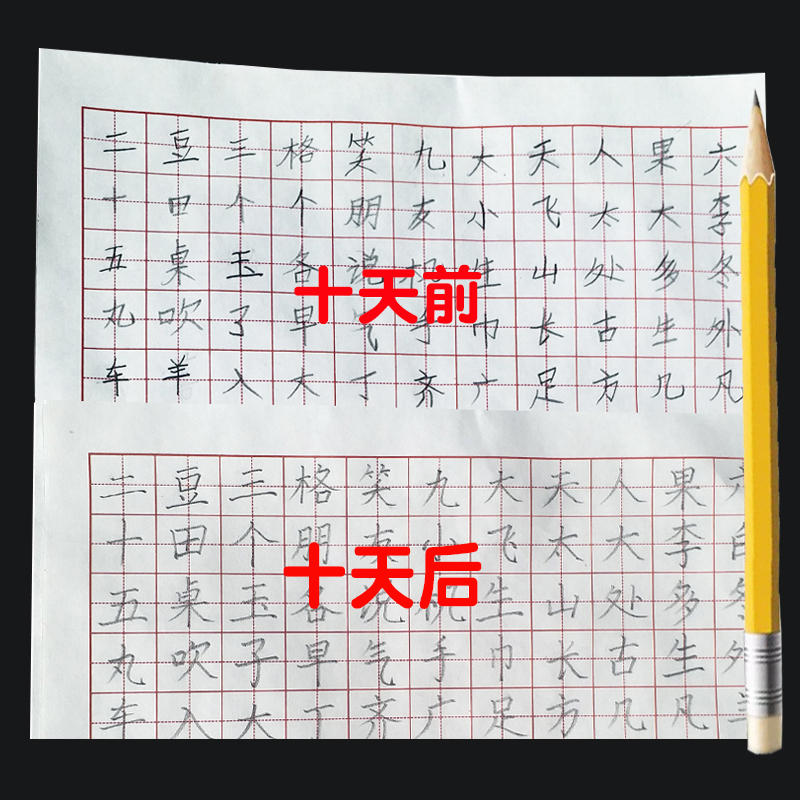 二豆三格笑九大天人果六
十田个个朋友小飞太大李
五桌玉各说机生山处多冬
十天前
丸吹了早气手巾长古生外
车羊入大丁齐广足方几凡
二豆三格笑九大天人果
十田个朋友小飞太大李
十天后
五桌玉各说机生山处多
丸吹子早气手巾长古生
车入大丁齐广足方几凡